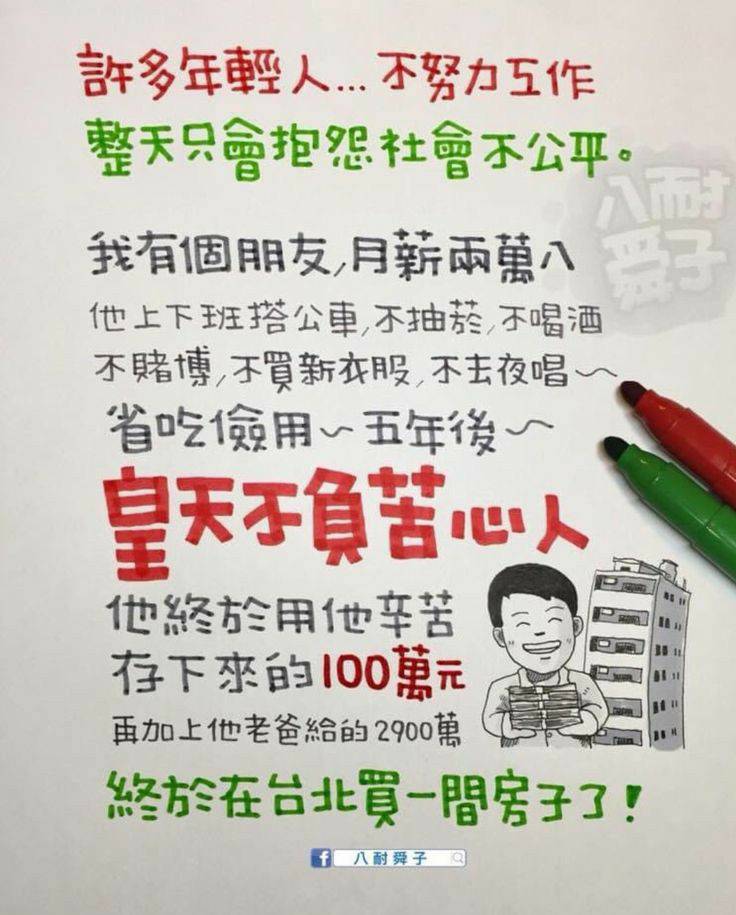 許多年輕人... 不努力工作
整天只會抱怨社會不公平。
八耐
舜子
我有個朋友,月薪兩萬八
他上下班搭公車,不抽菸,不喝酒
不賭博,不買新衣服,不去夜唱~
省吃儉用~五年後~
皇天不負苦心人
他終於用他辛苦
存下來的100萬元
再加上他老爸給的2900萬
終於在台北買一間房子了!
f 八耐舜子